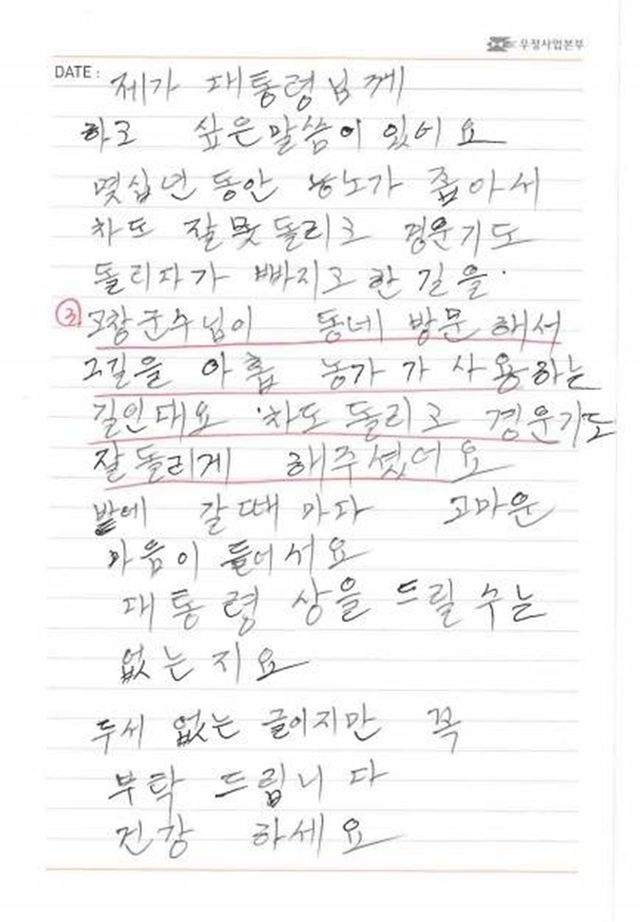 우정사업본부
DATE : 제가 대통령님께
하고 싶은말씀이 있어요
몇십년 동안 농노가 좁아서
차도 잘못돌리고 경운기도
돌리자가 빠지고 한 길을.
③ 고창군수님이 동네 방문해서
그길을 아홉 농가가 사용하는
길인대요 차도 돌리고 경운기도
잘돌리게 해주셨어요
밭에 갈때마다 고마운
마음이 들어서요
대통령 상을 드릴수는
없는지요
두서 없는 글이지만 꼭
부탁 드립니다
건강 하세요